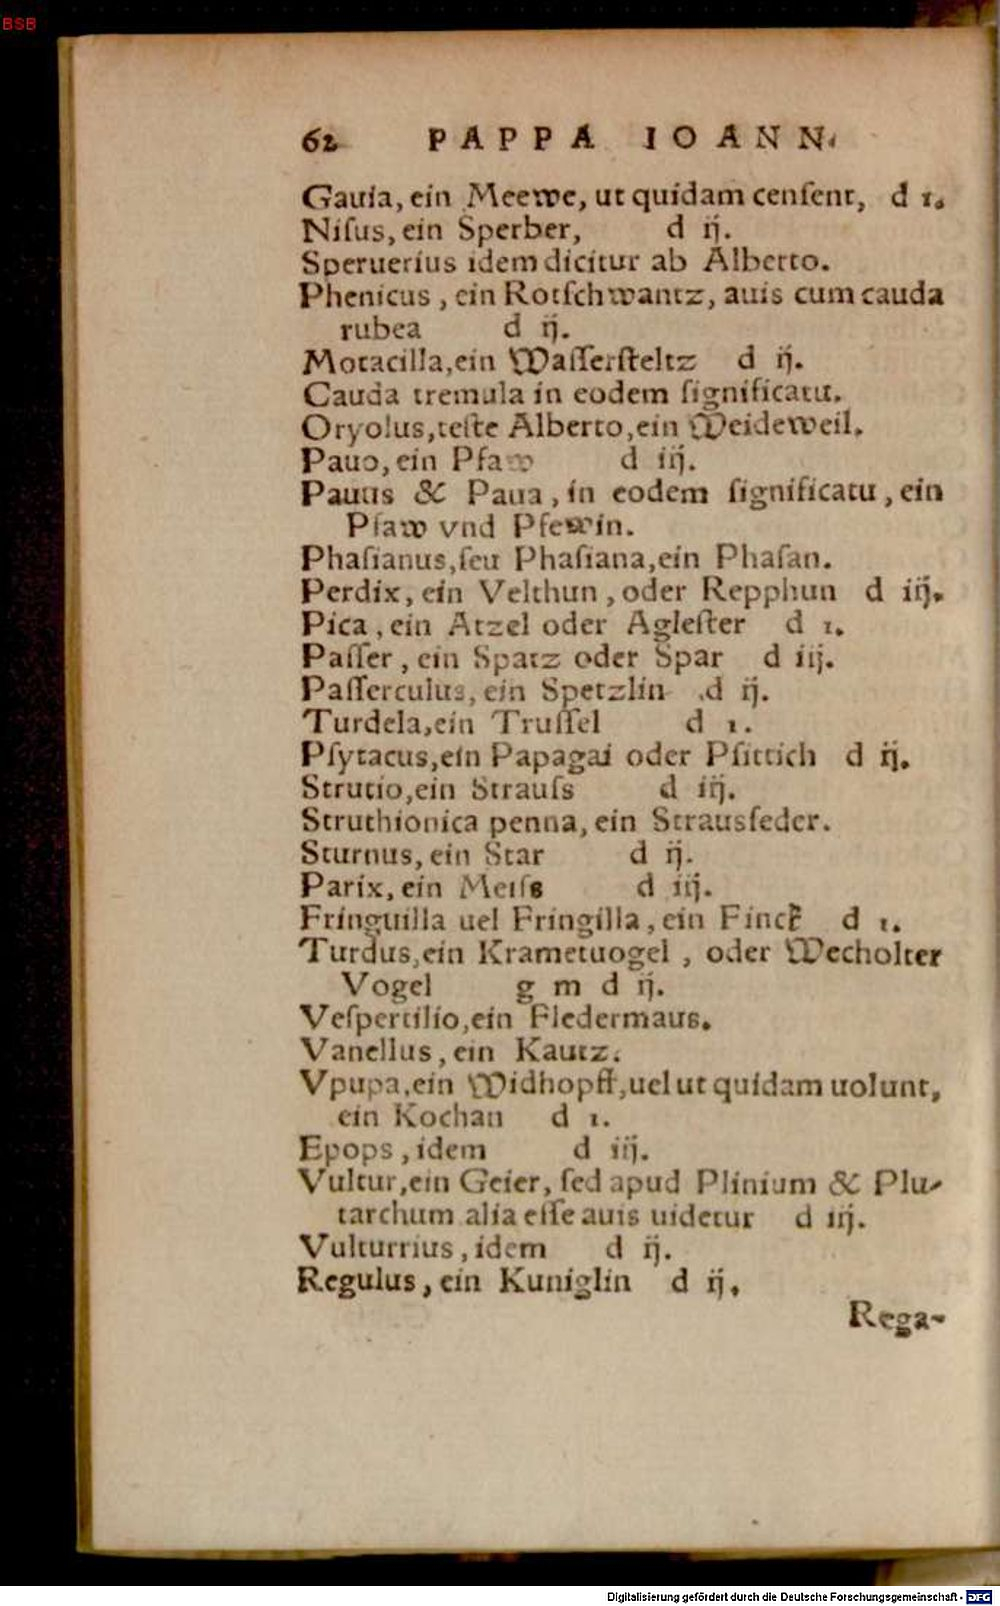 BSB
62 PAPPA IOANN.
Gauia, ein Meewe, ut quidam cenſent, d 1.
Niſus, ein Sperber, d ij.
Speruerius idem dicitur ab Alberto.
Phenicus, ein Rotſchwantz, auis cum cauda
rubea d ij.
Motacilla, ein Waſſerſteltz d ij.
Cauda tremula in eodem ſignificatu.
Oryolus, teſte Alberto, ein Weideweil.
Pauo, ein Pfaw d iij.
Pauus & Paua, in eodem ſignificatu, ein
Pfaw vnd Pfewin.
Phaſianus, ſeu Phaſiana, ein Phaſan.
Perdix, ein Velthun, oder Repphun d iij.
Pica, ein Atzel oder Agleſter d 1.
Paſſer, ein Spatz oder Spar d iij.
Paſſerculus, ein Spetzlin d ij.
Turdela, ein Truſſel d 1.
Pſytacus, ein Papagai oder Pſittich d ij.
Strutio, ein Strauſs d iij.
Struthionica penna, ein Strausfeder.
Sturnus, ein Star d ij.
Parix, ein Meiſs d iij.
Fringuilla uel Fringilla, ein Finck d 1.
Turdus, ein Krametuogel, oder Wecholter
Vogel g m d ij.
Veſpertilio, ein Fledermaus.
Vanellus, ein Kautz.
Vpupa, ein Widhopff, uel ut quidam uolunt,
ein Kochan d 1.
Epops, idem d iij.
Vultur, ein Geier, ſed apud Plinium & Plu-
tarchum alia eſſe auis uidetur d iij.
Vulturrius, idem d ij.
Regulus, ein Kuniglin d ij.
Rega-
Digitalisierung gefördert durch die Deutsche Forschungsgemeinschaft - DFG